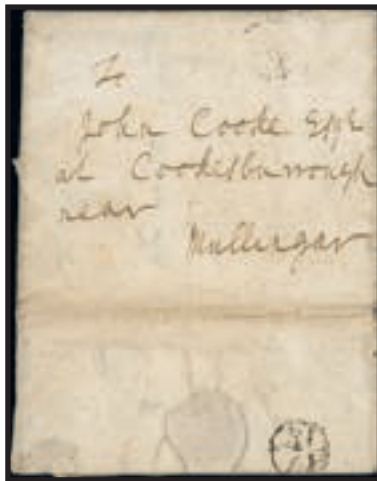 To
John Cooke Esqr
at Cookesborrough
near
Mullingar